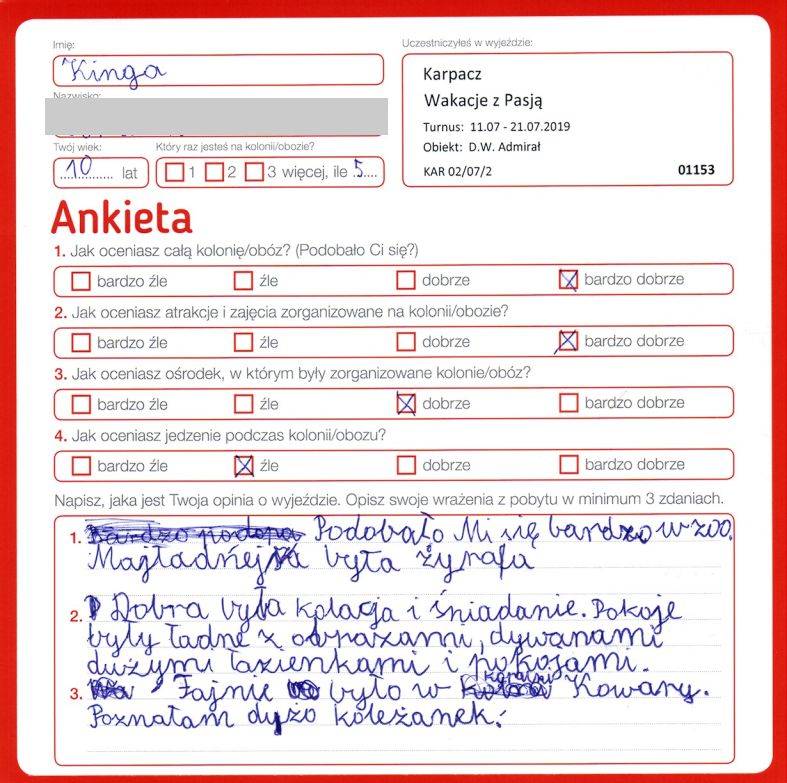 Imię:
Kinga
Nazwisko:
Twój wiek:
10 lat
Który raz jesteś na kolonii/obozie?
1 2 3 więcej, ile 5....
Uczestniczyłeś w wyjeździe:
Karpacz
Wakacje z Pasją
Turnus: 11.07 - 21.07.2019
Obiekt: D.W. Admirał
KAR 02/07/2 01153
Ankieta
1. Jak oceniasz całą kolonię/obóz? (Podobało Ci się?)
bardzo źle źle dobrze bardzo dobrze
2. Jak oceniasz atrakcje i zajęcia zorganizowane na kolonii/obozie?
bardzo źle źle dobrze bardzo dobrze
3. Jak oceniasz ośrodek, w którym były zorganizowane kolonie/obóz?
bardzo źle źle dobrze bardzo dobrze
4. Jak oceniasz jedzenie podczas kolonii/obozu?
bardzo źle źle dobrze bardzo dobrze
Napisz, jaka jest Twoja opinia o wyjeździe. Opisz swoje wrażenia z pobytu w minimum 3 zdaniach.
1. Podobało Mi się bardzo w zoo.
Majładniejsza była żyrafa
2. Dobra była kolacja i śniadanie. Pokoje
były ładne z obrazami, dywanami
dużymi łazienkami i pokojami.
3. Fajnie było w Kowary.
Poznałam dużo koleżanek.